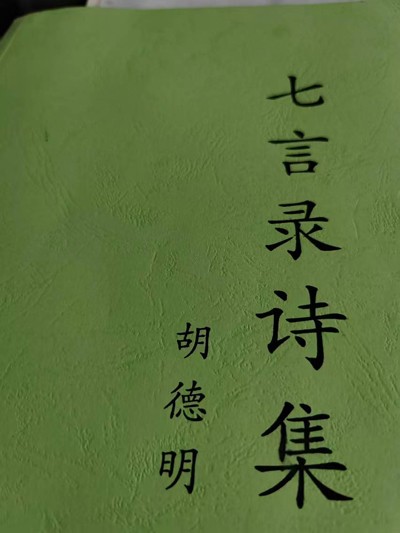 七言录诗集
胡德明